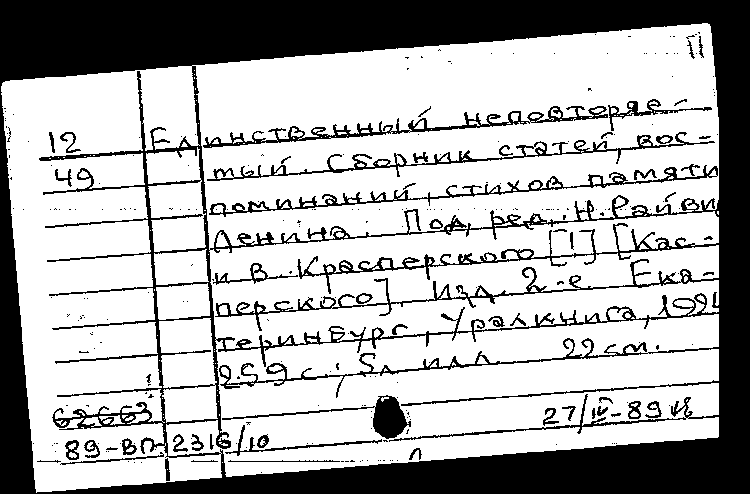 12 Единственный неповторяе-
49 мый. Сборник статей, вос-
поминаний, стихов памяти
Ленина. Под ред. Н. Райви
и В. Красперского [!] [Кас-
перского]. Изд. 2-е. Ека-
теринбург, Уралкнига, 1924
259 с.; 5 л илл. 22 см.
62663
89-ВП-2316/10 27/IV-89